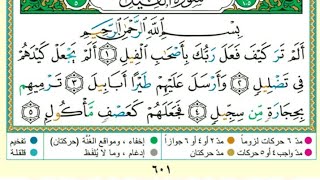 سُورَةُ الفِيلِ
بِسْمِ اللَّهِ الرَّحْمَٰنِ الرَّحِيمِ
أَلَمْ تَرَ كَيْفَ فَعَلَ رَبُّكَ بِأَصْحَابِ الْفِيلِ ١ أَلَمْ يَجْعَلْ كَيْدَهُمْ
فِي تَضْلِيلٍ ٢ وَأَرْسَلَ عَلَيْهِمْ طَيْرًا أَبَابِيلَ ٣ تَرْمِيهِم
بِحِجَارَةٍ مِّن سِجِّيلٍ ٤ فَجَعَلَهُمْ كَعَصْفٍ مَّأْكُولٍ ٥
مدّ ٦ حركات لزوماً مدّ ٢ أو ٤ أو ٦ جوازاً إخفاء، ومواقع الغُنَّة (حركتان) تفخيم
مدّ واجب ٤ أو ٥ حركات مدّ حركتان إدغام، وما لا يُلفَظ قلقلة
٦٠١